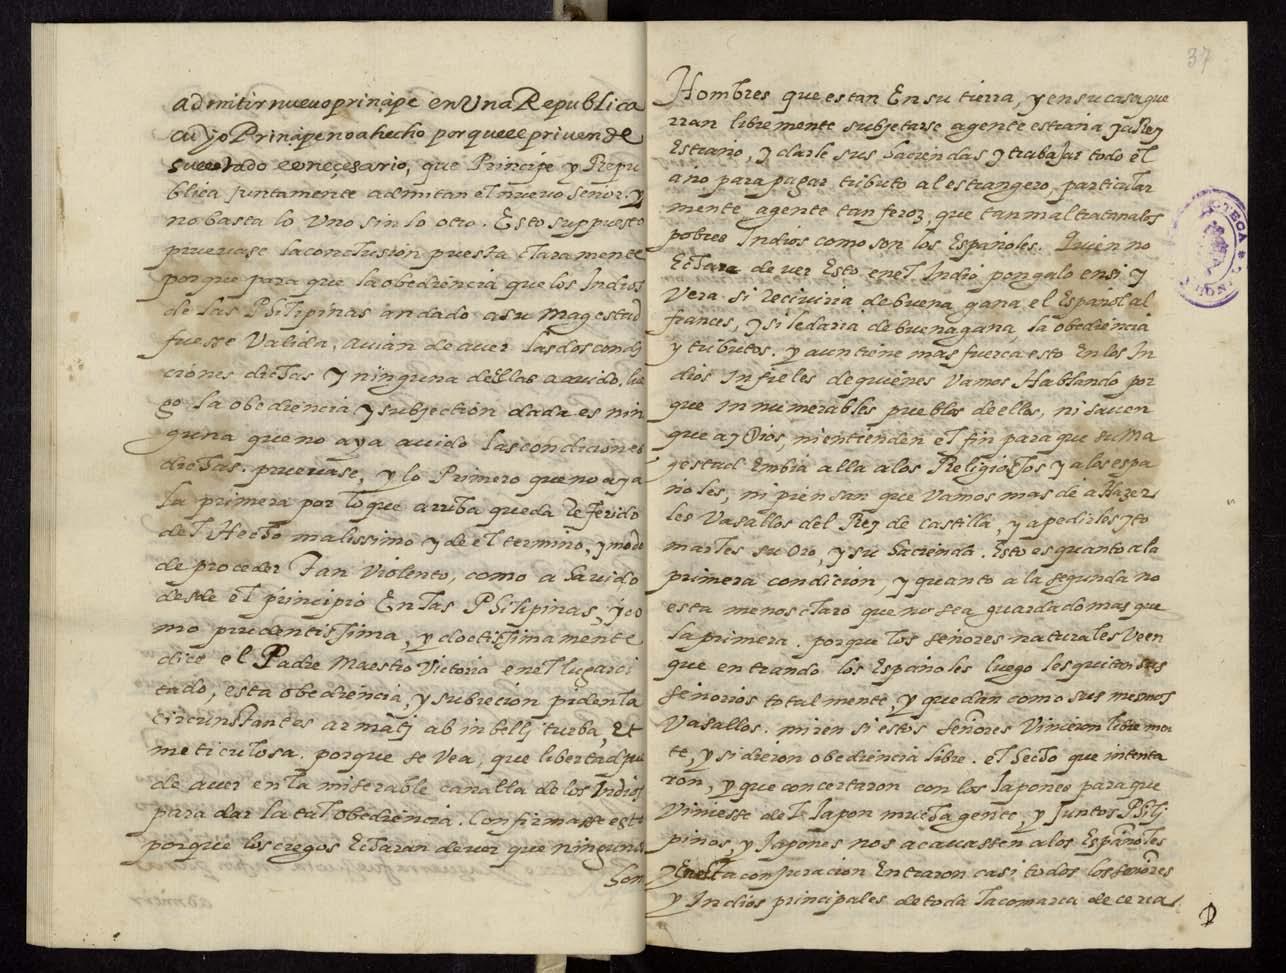 admitir nuevo prinçipe en Una Republica
cuyo Prinçipe no a hecho por que le priven de
su estado es neçesario, que Principe y Repu
blica juntamente admitan el nuevo Señor. y
no basta lo Uno sin lo otro. Esto suppuesto
pruevase la conclusion puesta claramente
porque para que la obediencia que los Indios
de las Philipinas an dado a su magestad
fuesse Valida, avian de aver las dos condi
ciones dichas y ninguna dellas a avido, lue
go la obediencia y subjection dada es nin
guna que no aya avido las condiciones
dichas. pruevase, y lo Primero que no aya
la primera por lo que arriba queda Referido
del Hecho malissimo y de el termino, y modo
de proceder Tan Violento, como a havido
desde el principio En las Philipinas, y co
mo prudentissima, y doctissimamente
dice el Padre Maestro Victoria en el lugar ci
tado, esta obediencia, y subjecion piden la
circunstantes armati ab imbelli turba, et
meticulosa. porque se Vea, que libertad pu
de aver en la miserable canalla de los Indios
para dar la tal obediencia. Confirmasse esto
porque los ciegos Echaran de ver que ningunos
Hom
37
Hombres que estan En su tierra, y en su casa que
rran libremente subjetarse a gente estraña y a Rey
Estraño, y darle sus haciendas y trabajar todo el
año para pagar tributo al estrangero, particular
mente a gente tan feroz, que tan mal tratan a los
pobres Indios como son los Españoles. Quien no
Echare de ver Esto en el Indio pongalo en si y
Vera si Reciviria de buena gana el Español al
frances, y si le daria de buena gana la obediencia
y tributos. y aun tiene mas fuerça esto En los In
dios Infieles de quienes Vamos Hablando por
que innumerables pueblos de ellos, ni saven
que ay Dios, ni entienden el fin para que su Ma
gestad Embia alla a los Religiosos y a los espa
ñoles, ni piensan que Vamos mas de a Hazer
les Vasallos del Rey de Castilla, y a pedirles y to
marles su Oro, y su hacienda. Esto es quanto a la
primera condicion, y quanto a la segunda no
esta menos claro que no sea guardado mas que
la primera, porque los señores naturales Veen
que entrando los Españoles luego les quitan sus
señorios totalmente, y quedan como sus mesmos
Vasallos. miren si estos Señores Vinieron libremen
te, y si dieron obediencia libre. el hecho que intenta
ron, y que concertaron con los Japones para que
Viniesse del Japon mucha gente, y Juntos Phili
pinos, y Japones nos acavassen a los Españoles
y En esta conjuracion Entraron casi todos los señores
y Indios principales de toda la comarca de cerca